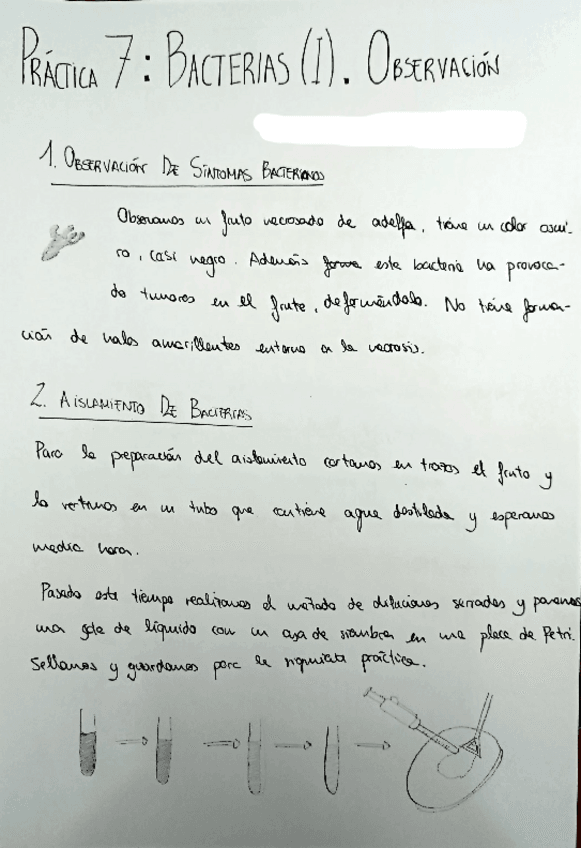 PRÁCTICA 7: BACTERIAS (I). OBSERVACIÓN
1. OBSERVACIÓN DE SÍNTOMAS BACTERIANOS
Observamos un fruto necrosado de adelfa, tiene un color oscu-
ro, casi negro. Además forma este bacteria ha provoca-
do tumores en el frute, deformándolo. No tiene forma-
ción de halos amarillentos entorno a la necrosis.
2. AISLAMIENTO DE BACTERIAS
Para la preparación del aislamiento cortamos en trozos el fruto y
lo vertimos en un tubo que contiene agua destilada y esperamos
media hora.
Pasado este tiempo realizamos el método de diluciones seriadas y ponemos
una gota de líquido con un asa de siembra en una placa de Petri.
Sellamos y guardamos para la siguiente práctica.